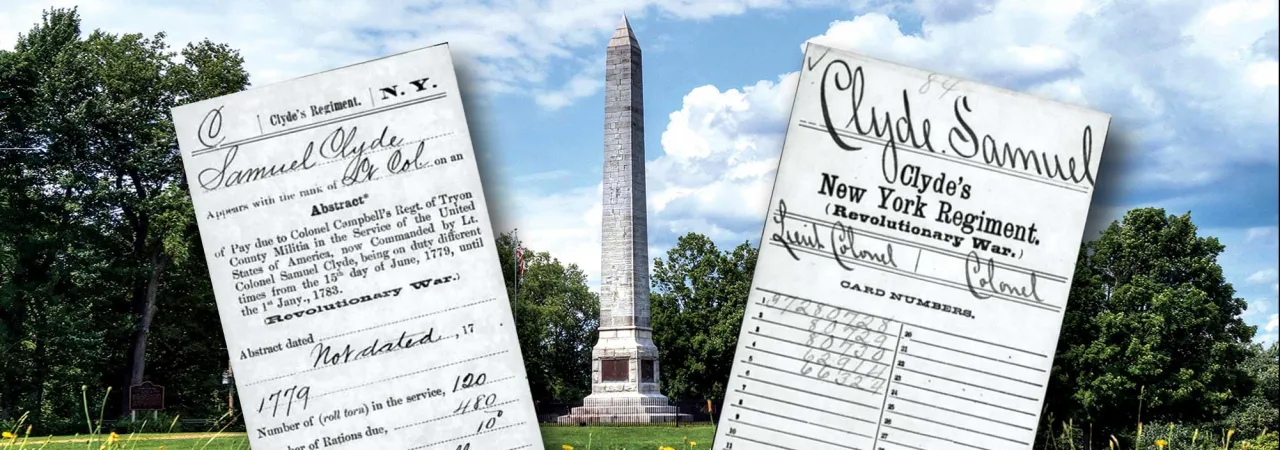 C Clyde's Regiment. N. Y.
Samuel Clyde
Appears with the rank of Lt Col on an
Abstract*
of Pay due to Colonel Campbell's Regt. of Tryon
County Militia in the Service of the United
States of America, now Commanded by Lt.
Colonel Samuel Clyde, being on duty different
times from the 15th day of June, 1779, until
the 1st Jany., 1783.
(Revolutionary War.)
Abstract dated Not dated, 17
1779
Number of (roll torn) in the service, 120
ber of Rations due, 480
10
84
Clyde. Samuel
Clyde's
New York Regiment.
(Revolutionary War.)
Lieut Colonel Colonel
CARD NUMBERS.
1 37280728 20
2 80429 21
3 80730 22
4 62914 23
5 66324 24
6 25
7 26
8 27
9 28
10 29
11